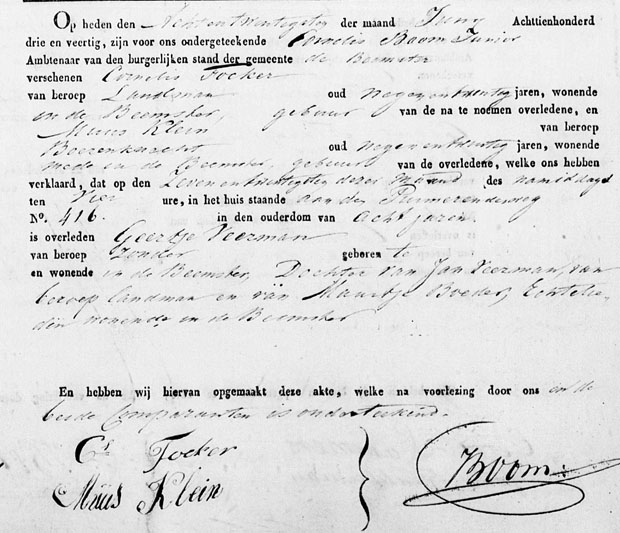 Op heden den Achtentwintigsten der maand Juny Achttienhonderd
drie en veertig, zijn voor ons ondergeteekende Cornelis Boom Junior
Ambtenaar van den burgerlijken stand der gemeente de Beemster
verschenen Cornelis Tocker
van beroep Landman oud negenentwintig jaren, wonende
in de Beemster, gebuur van de na te noemen overledene, en
Muus Klein van beroep
Boerenknecht oud negenentwintig jaren, wonende
mede in de Beemster, gebuur van de overledene, welke ons hebben
verklaard, dat op den Zevenentwintigsten dezer Maand des namiddags
ten Vier ure, in het huis staande aan den Purmerenderweg
No. 416. in den ouderdom van acht jaren
is overleden Geertje Veerman
van beroep Zonder geboren te
en wonende in de Beemster, Dochter van Jan Veerman, van
beroep landman en van Maartje Boeder, Echtelie-
den wonende in de Beemster
En hebben wij hiervan opgemaakt deze akte, welke na voorlezing door ons en de
beide Comparanten is onderteekend.
Cs Tocker
Muus Klein
Boom.